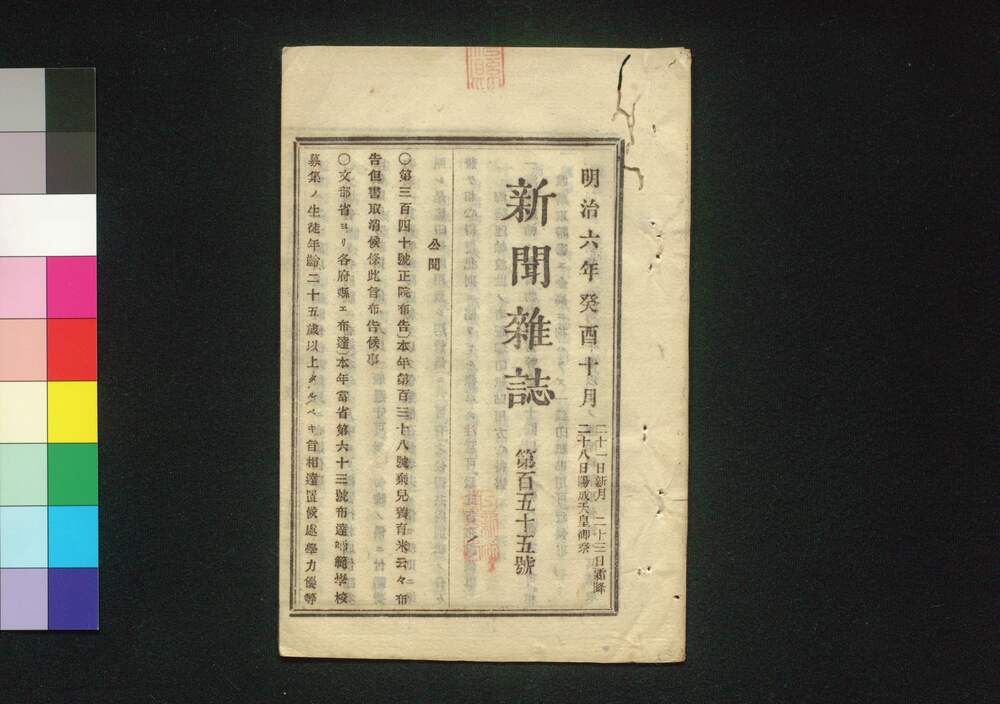 明治六年癸酉十月
二十一日新月 二十三日霜降
二十八日陽成天皇御祭
新聞雜誌
第百五十五號
公聞
〇第三百四十號正院布告〕本年第百三十八號棄兒養育米云々布
告但書取消候條此旨布告候事
〇文部省ヨリ各府縣エ布達〕本年當省第六十三號布達師範學校
募集ノ生徒年齡二十五歲以上タルベキ旨相達置候處學力優等